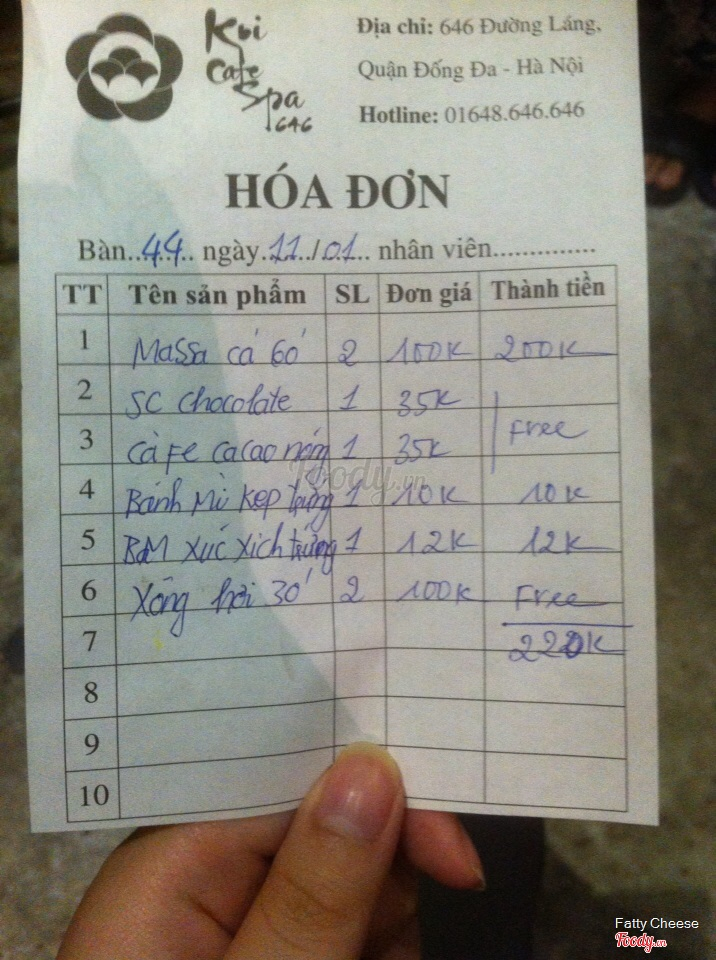 Koi
Cafe
Spa
646
Địa chỉ: 646 Đường Láng,
Quận Đống Đa - Hà Nội
Hotline: 01648.646.646
HÓA ĐƠN
Bàn..44.. ngày.11../.01.. nhân viên..............
TT Tên sản phẩm SL Đơn giá Thành tiền
1 Massa cá 60' 2 100K 200K
2 SC Chocolate 1 35K
Free
3 Cà Fe cacao nóng 1 35K
4 Bánh Mì kẹp trứng 1 10K 10K
5 BM xúc xích trứng 1 12K 12K
6 Xông hơi 30' 2 100K Free
7 220K
8
9
10
Foody.vn
Fatty Cheese
Foody.vn